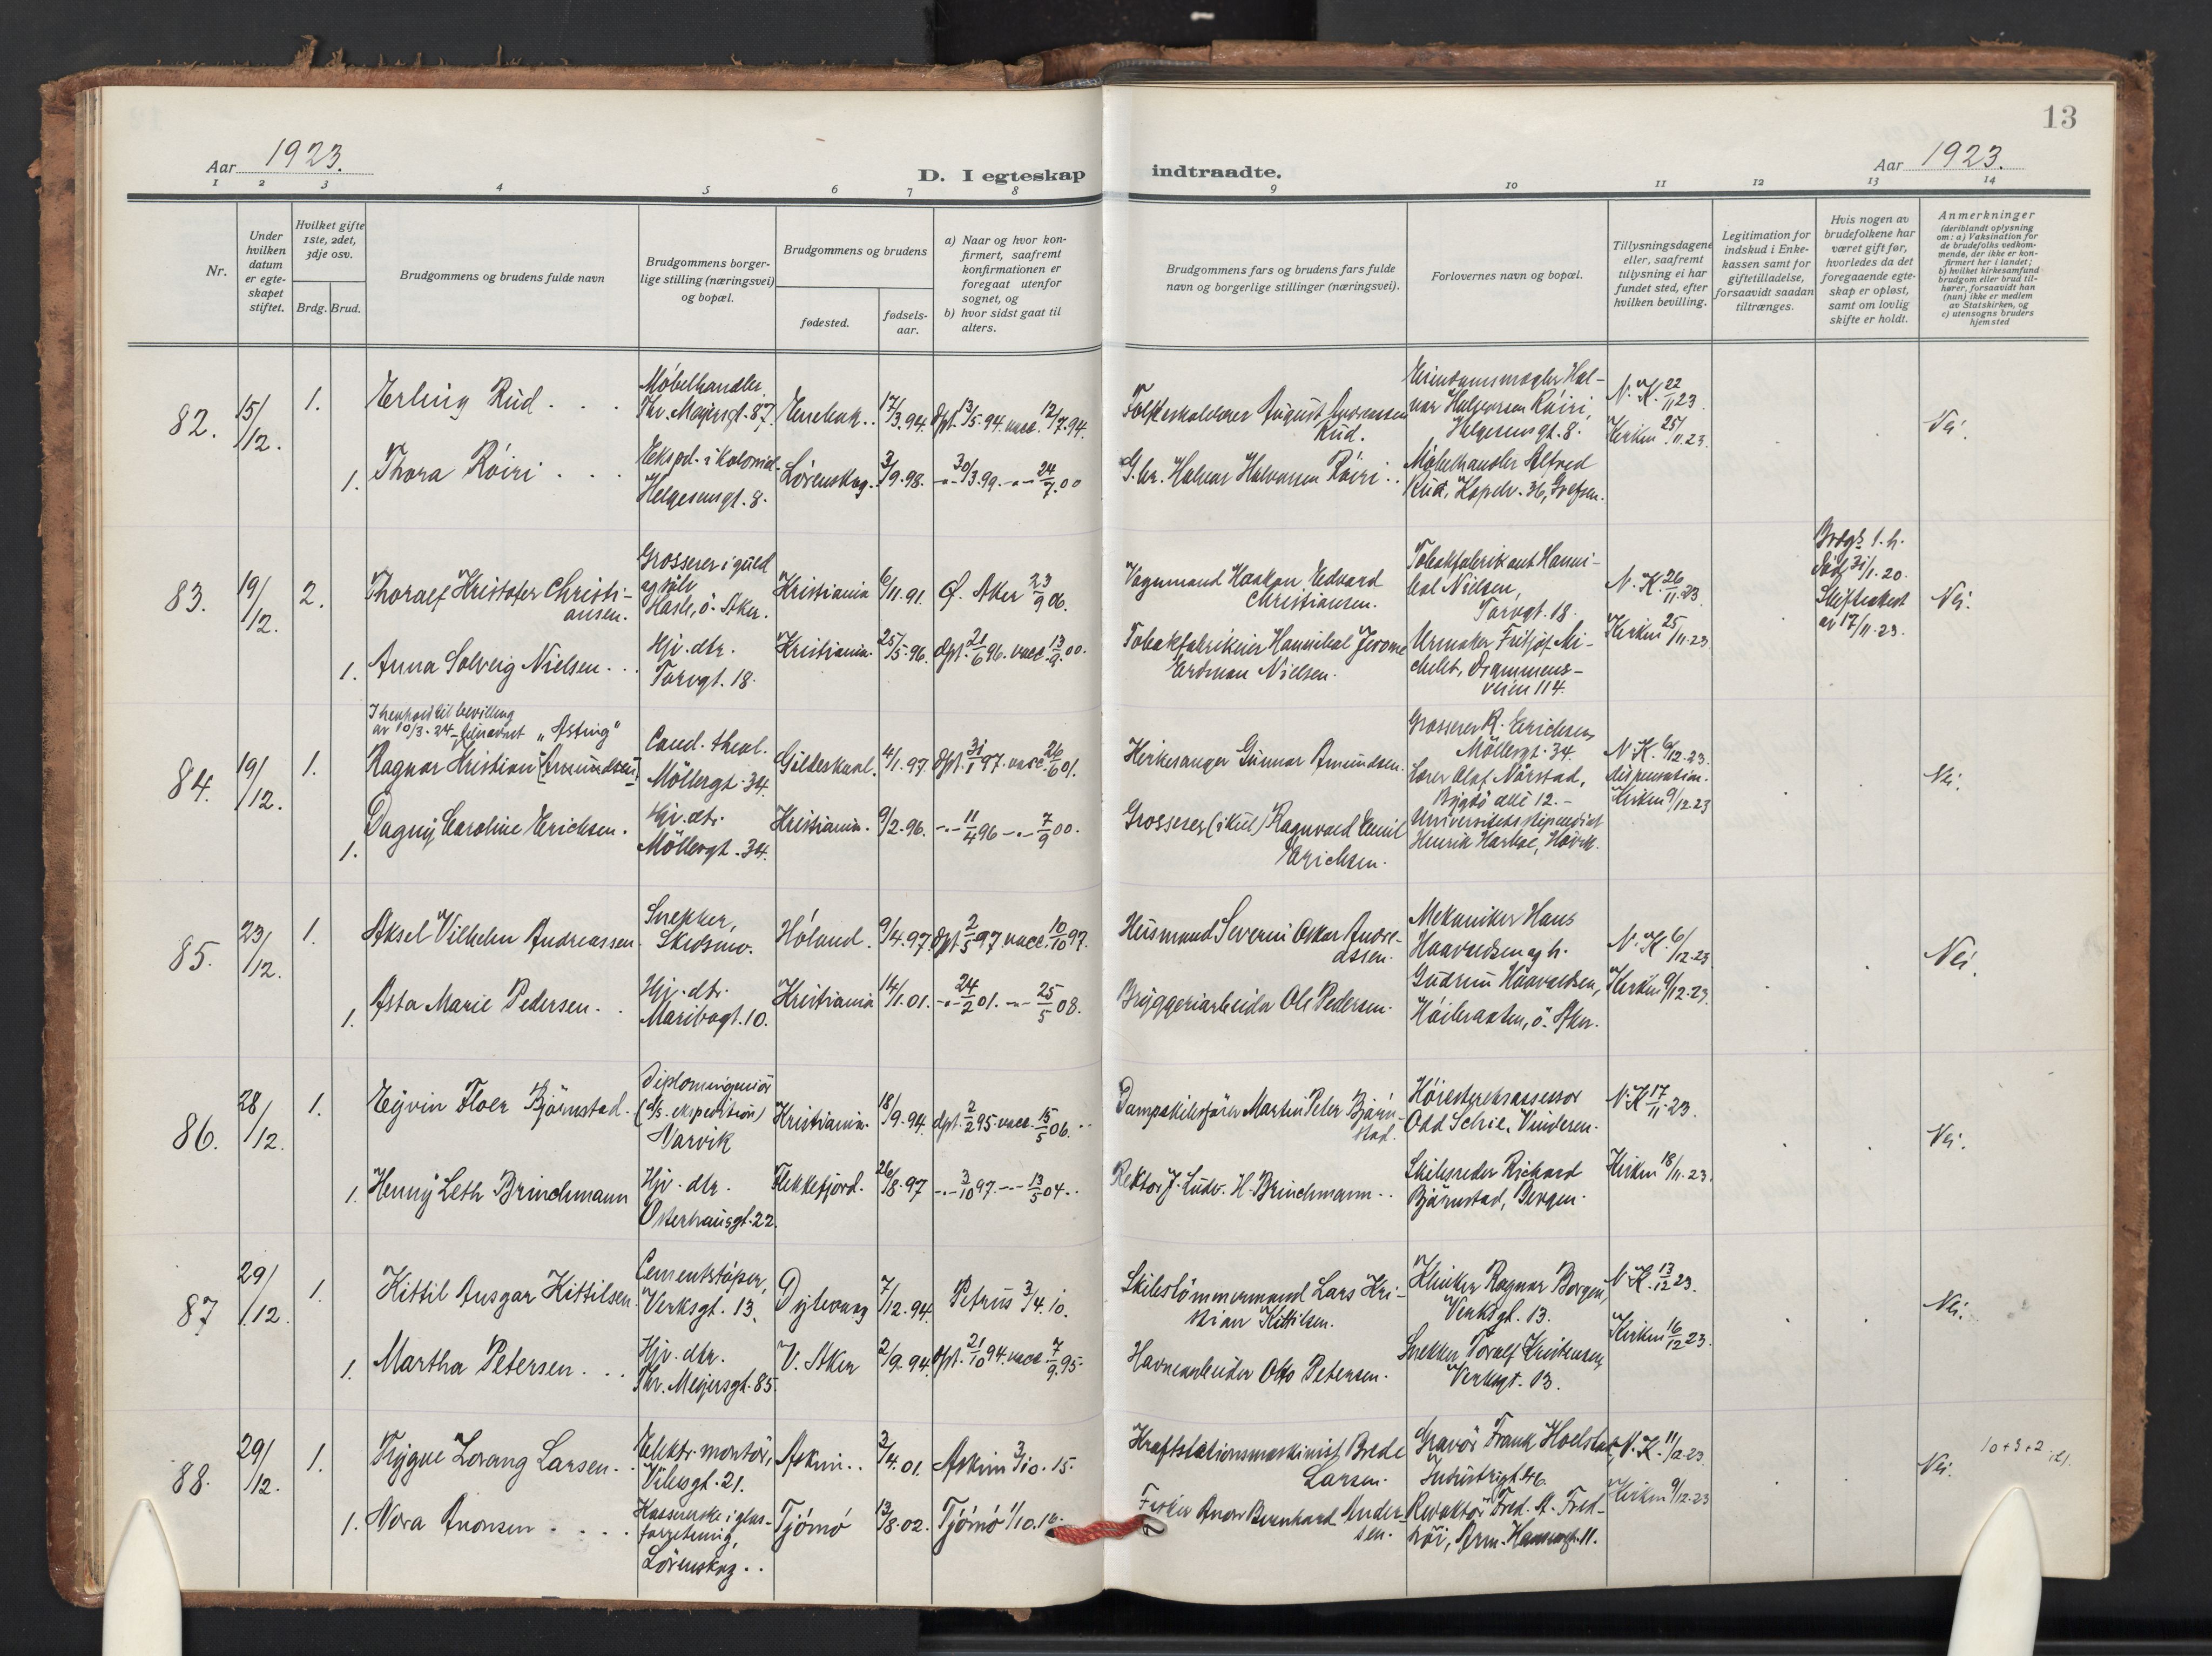 13
Aar 1923.
D. I egteskap indtraadte.
Aar 1923.
1 2 3 4 5 6 7 8 9 10 11 12 13 14
Nr.
Under hvilken datum er egte-skapet stiftet.
Hvilket gifte 1ste, 2det, 3dje osv.
Brdg. Brud.
Brudgommens og brudens fulde navn
Brudgommens borger-lige stilling (næringsvei) og bopæl.
Brudgommens og brudens
fødested.
fødsels-aar.
a) Naar og hvor kon-firmert, saafremt konfirmationen er foregaat utenfor sognet, og
b) hvor sidst gaat til alters.
Brudgommens fars og brudens fars fulde navn og borgerlige stillinger (næringsvei).
Forlovernes navn og bopæl.
Tillysningsdagene eller, saafremt tillysning ei har fundet sted, efter hvilken bevilling.
Legitimation for indskud i Enke-kassen samt for giftetilladelse, forsaavidt saadan tiltrænges.
Hvis nogen av brudefolkene har været gift før, hvorledes da det foregaaende egte-skap er opløst, samt om lovlig skifte er holdt.
Anmerkninger (deriblandt oplysning om: a) Vaksination for de brudefolks vedkom-mende, der ikke er kon-firmert her i landet; b) hvilket kirkesamfund brudgom eller brud til-hører, forsaavidt han (hun) ikke er medlem av Statskirken, og c) utensogns bruders hjemsted
82. 15/12. 1. Erling Rud . . .
Møbelhandler
Thv. Meyersgt. 87.
Enebak . . 17/3.94. dpt. 13/5.94. vacc. 12/7.94.
Folkeskolelærer August Andreassen
Rud.
Eiendomsmegler Hal-
vor Halvorsen Røiri,
Helgesensgt. 8.
N. K. 22/11 23.
Kirken 25/11.23.
Nei.
1. Thora Røiri . . .
Eksped. i kolonial.
Helgesensgt. 8.
Lørenskog. 3/9.98. -"- 30/3.99. -"- 24/7.00
G.br. Halvor Halvorsen Røiri . .
Møbelhandler Alfred
Rud, Kapelv. 36, Grefsen.
83. 19/12. 2. Thoralf Kristofer Christi-
ansen.
Grosserer i guld
og sølv
Hasle, ö. Aker.
Kristiania 6/11.91. Ø. Aker 23/9 06.
Vognmand Haakon Edvard
Christiansen.
Tobakfabrikant Hanni-
bal Nielsen,
Torvgt. 18.
N. K. 26/11.23.
Kirken 25/11.23.
Brdgs 1. h.
död 31/1.20.
Skifteattest
av 17/11.23.
Nei.
1. Anna Solveig Nielsen . . .
Hjv. dtr.
Torvgt. 18.
Kristiania. 25/5.96. dpt. 21/6 96. vacc. 13/9.00.
Tobakfabrikeier Hannibal Jerome
Erdman Nielsen.
Urmaker Fritjof Mi-
chelet, Drammens-
veien 114.
I henhold til bevilling
av 10/3.24 tilnavnet „Asting"
84. 19/12. 1. Ragnar Kristian (Amundsen)
Cand. theol.
Möllergt. 34.
Gildeskaal. 4/1.97. dpt. 31/1 97. vacc. 26/6 01.
Kirkesanger Gunnar Amundsen.
Grosserer R. Erichsen
Möllergt. 34.
Lærer Olaf Nårstad,
Bygdö allé 12. -
N. K. 6/12.23.
dispensation.
Kirken 9/12.23
Nei.
1. Dagny Caroline Erichsen.
Hjv. dtr.
Möllergt. 34.
Kristiania. 9/2.96. -"- 11/4 96 -"- 7/9 00.
Grosserer (i kul) Ragnvald Emil
Erichsen.
Universitetsstipendiat
Henrik Høvik.
85. 23/12. 1. Aksel Vilhelm Andreassen
Snekker,
Skedsmo.
Høland. 9/4.97. dpt. 2/5 97. vacc. 10/10 97.
Husmand Severin Oskar Andre-
assen.
Mekaniker Hans
Haavaldsen og h.
Gudrun Haavaldsen,
Høibraaten, ö. Aker.
N. K. 6/12.23
Kirken 9/12.23.
Nei.
1. Asta Marie Pedersen . .
Hjv. dtr.
Maribogt. 10.
Kristiania 14/1.01. -"- 24/2 01. -"- 25/5 08.
Bryggeriarbeider Ole Pedersen.
86. 28/12. 1. Eyvin Floer Bjørnstad.
Diplomingeniör
(d/s. ekspedition)
Narvik
Kristiania. 18/9.94. dpt. 2/2 95. vacc. 15/5 06. . .
Dampskibsfører Martin Peter Bjørn-
stad.
Høiesteretsassessor
Odd Schie, Vinderen.
N. K. 17/11.23.
Kirken 18/11.23.
Nei.
1. Henny Leth Brinchmann
Hjv. dtr.
Osterhausgt. 22.
Flekkefjord. 26/8.97 -"- 3/10 97. -"- 13/5 04 . .
Rektor J. Ludv. H. Brinchmann . .
Skibsreder Richard
Bjørnstad, Bergen.
87 29/12. 1. Kittil Ansgar Kittilsen.
Cementstøper,
Verksgt. 13.
Dypevaag 7/12.94. Petrus 3/4.10.
Skibstömmermand Lars Kri-
stian Kittilsen.
Ragnar Borgen,
Verksgt. 13.
N. K. 13/12 23.
Kirken 16/12 23.
Nei.
1. Martha Petersen . . .
Hjv. dtr.
Thv. Meyersgt. 85.
V. Aker 2/9.94. dpt. 21/10 94. vacc. 7/9.95.
Havnearbeider Otto Petersen.
Snekker Toralf Kristensen,
Verksgt. 13.
88. 29/12. 1. Trygve Lorang Larsen . .
Elektr. montör,
Vibesgt. 21.
Askim . . 3/4.01. Askim 3/10.15.
Kraftstationsmaskinist Brede
Larsen.
Gravör Frank Hoelstad,
Industrigt. 46.
N. K. 11/12.23
Kirken 9/12.23
Nei.
10+3+2
1. Nora Anonsen . . . .
Kasserske i glas-
forretning,
Lörenskog . .
Tjømø 13/8.02. Tjømø 1/10.16.
Fisker Anon Bernhard Ander-
sen.
Redaktør Fred. A. Fred-
høi, Arm. Hansensgt. 11.